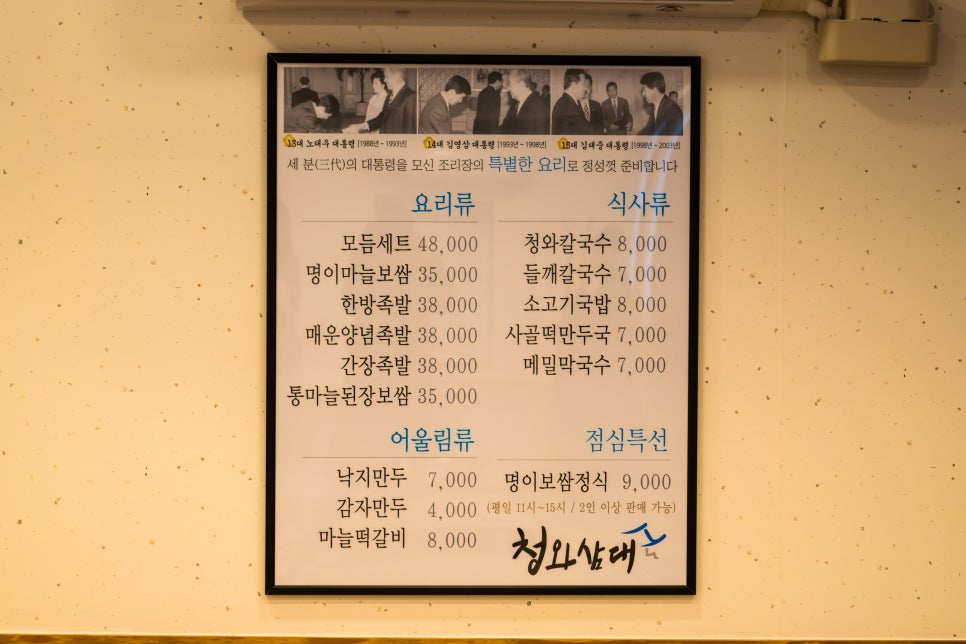 13대 노태우 대통령 [1988년 ~ 1993년] 14대 김영삼 대통령 [1993년 ~ 1998년] 15대 김대중 대통령 [1998년 ~ 2003년]
세 분(三代)의 대통령을 모신 조리장의 특별한 요리로 정성껏 준비합니다
요리류
모듬세트 48,000
명이마늘보쌈 35,000
한방족발 38,000
매운양념족발 38,000
간장족발 38,000
통마늘된장보쌈 35,000
식사류
청와칼국수 8,000
들깨칼국수 7,000
소고기국밥 8,000
사골떡만두국 7,000
메밀막국수 7,000
어울림류
낙지만두 7,000
감자만두 4,000
마늘떡갈비 8,000
점심특선
명이보쌈정식 9,000
(평일 11시~15시 / 2인 이상 판매 가능)
청와삼대